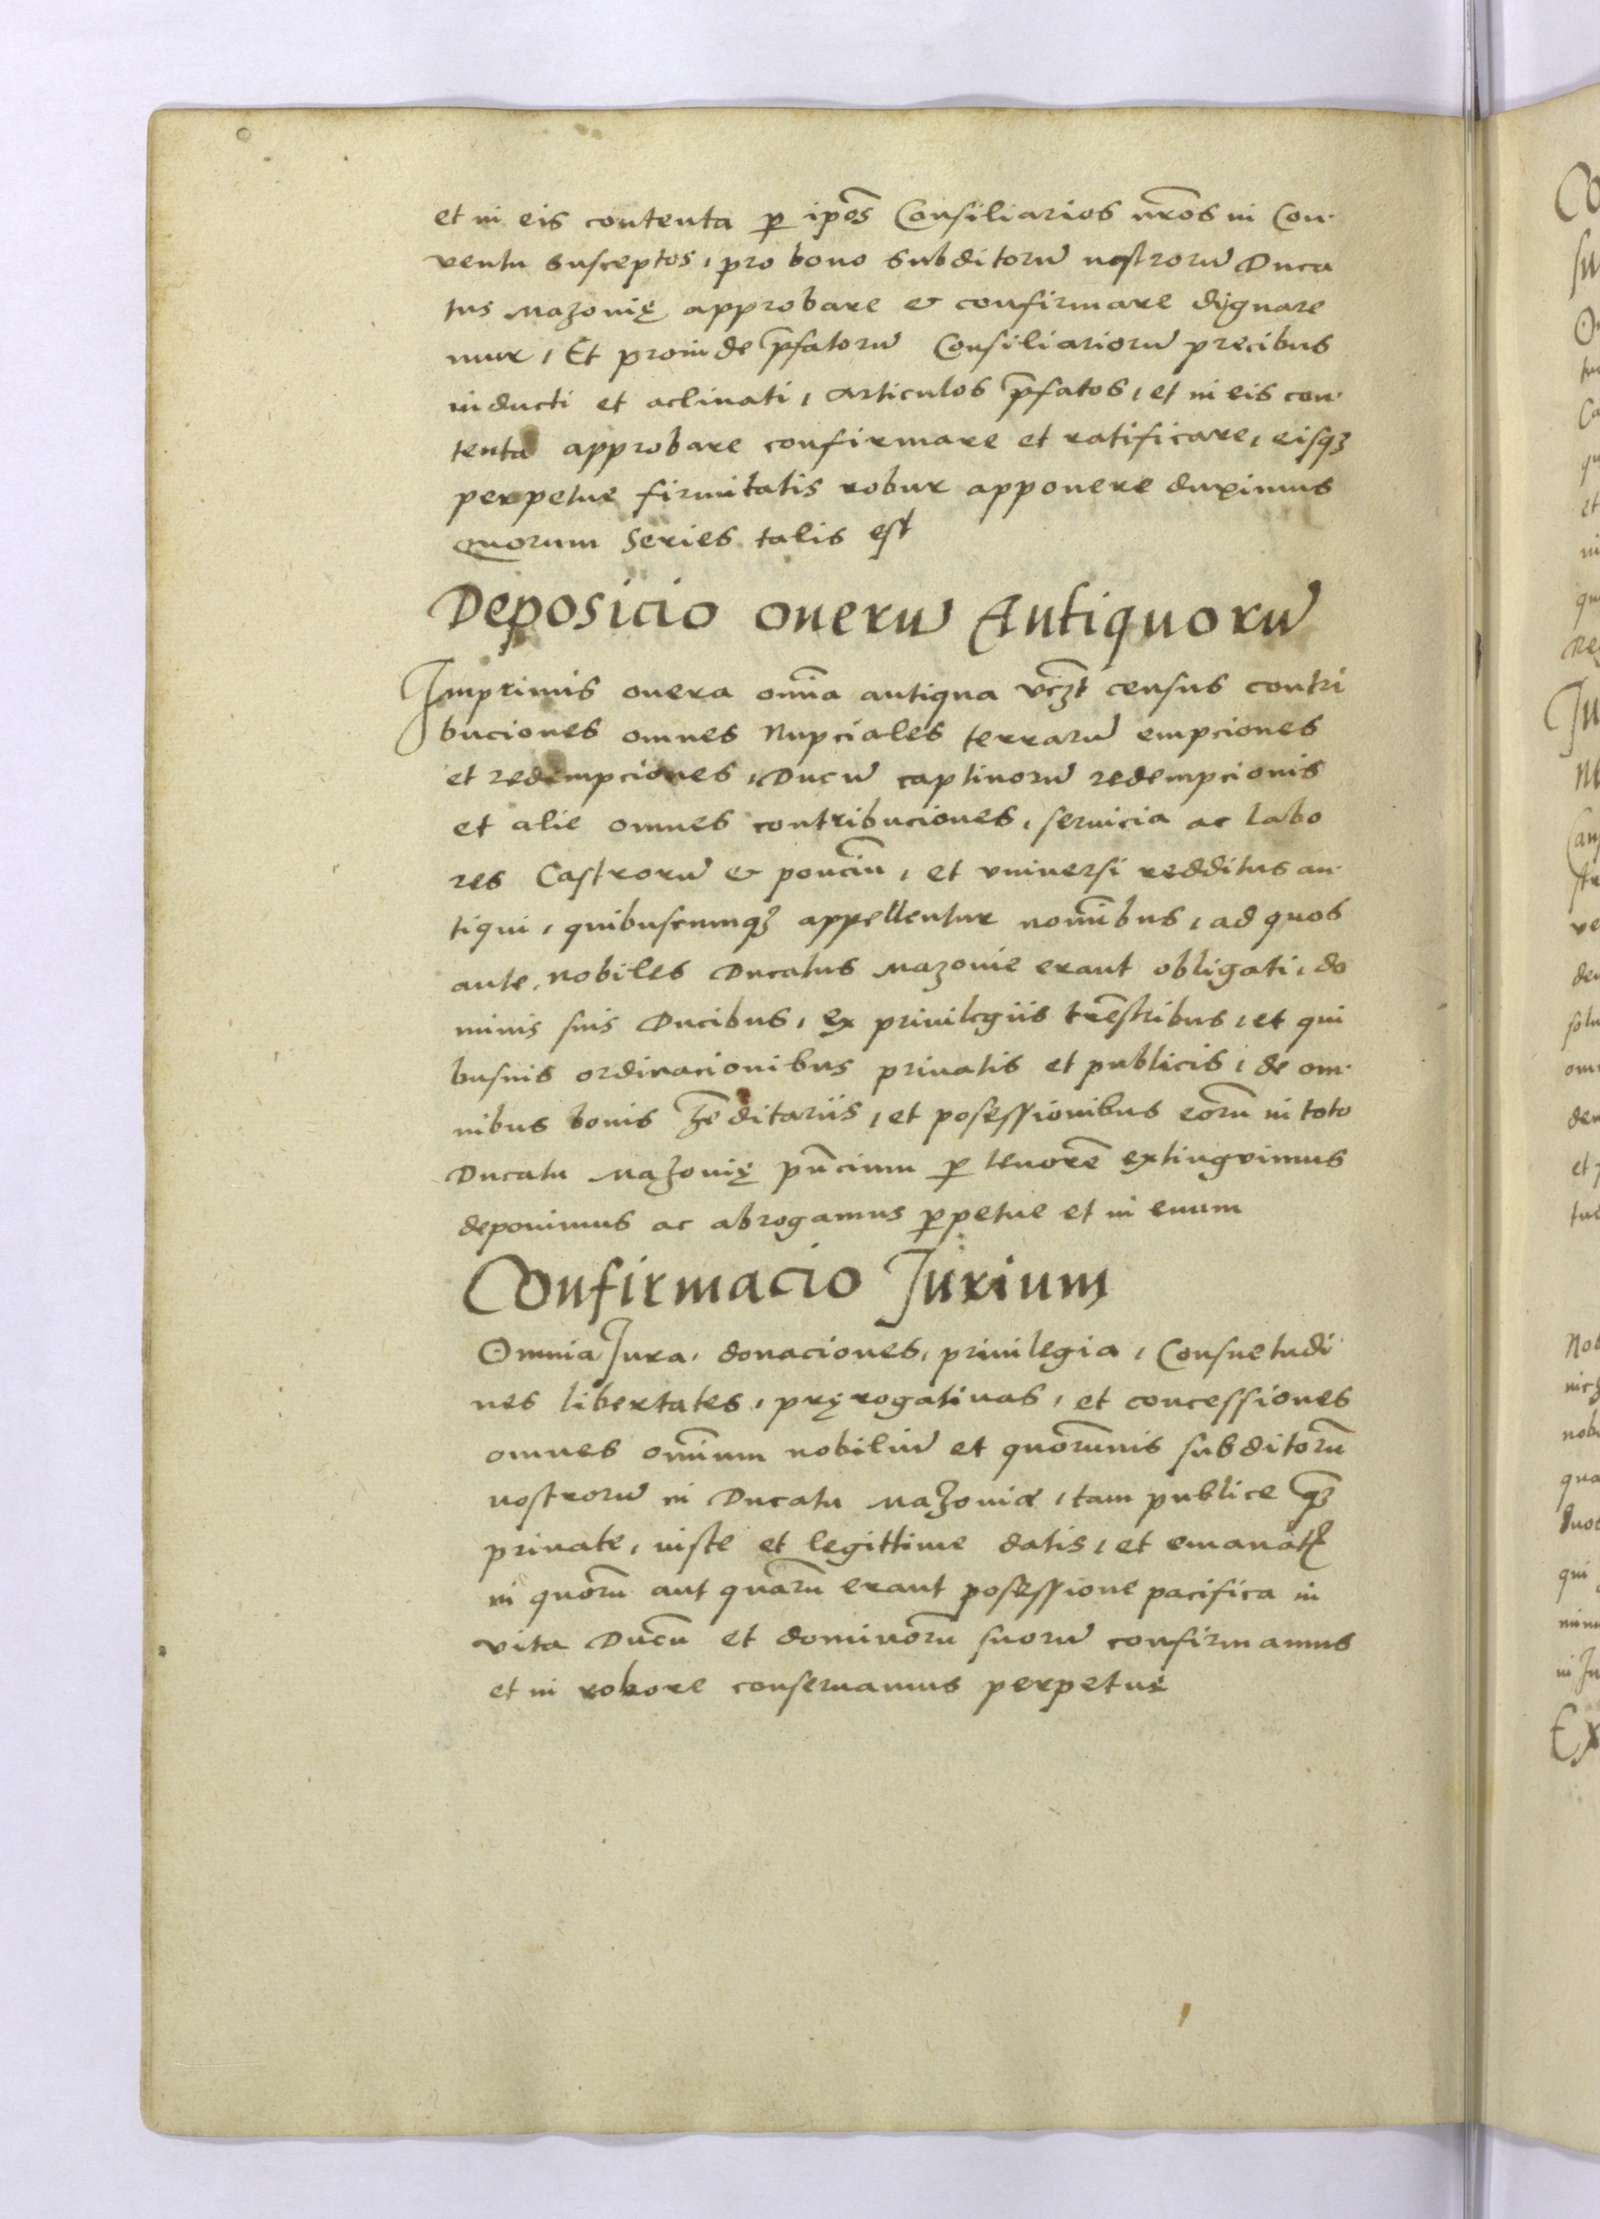 et in eis contenta ꝑ ip̄es Consiliarios nr̄os in Con·
ventu susceptos, pro bono subditorū nostrorū Duca
tus Mazovię approbare & confirmare dignare
mur, Et proinde p̄fatorū Consiliariorū precibus
inducti et aclinati, articulos p̄fatos, et in eis con·
tenta approbare confirmare et ratificare, eisqꝫ
perpetue firmitatis robur apponere duximus
quorum series talis est
Deposicio onerū Antiquorū
Imprimis onera om̄ia antiqua vcꝫt census contri
buciones omnes Nupciales terrarū empciones
et redempciones, Ducū captivorū redempcionis
et alie omnes contribuciones, servicia ac labo
res Castrorū & ponciū, et universi redditus an·
tiqui, quibuscumqꝫ appellentur nomi͞bus, ad quos
ante, nobiles Ducatus Mazovie erant obligati, do
minis suis Ducibus, ex privilegiis tr̄estribus, et qui
busvis ordinacionibus privatis et publicis, de om·
nibus bonis hęditariis, et posessionibus eorū in toto
Ducatu Mazovię pn̄cium ꝑ tenorē extingvimus
deponimus ac abrogamus ꝑpetue et in evum
Confirmacio Jurium
Omnia Jura, donaciones, privilegia, Consuetudi
nes libertates, pręrogativas, et concessiones
omnes om̄ium nobiliū et quorumvis subditorū
nostrorū in Ducatu Mazoviæ, tam publice qꝫ
private, iuste et legittime datis, et emanatꝭ
in quorū aut quarū erant posessione pacifica in
vita Ducū et dominorū suorū confirmamus
et in robore conservamus perpetue